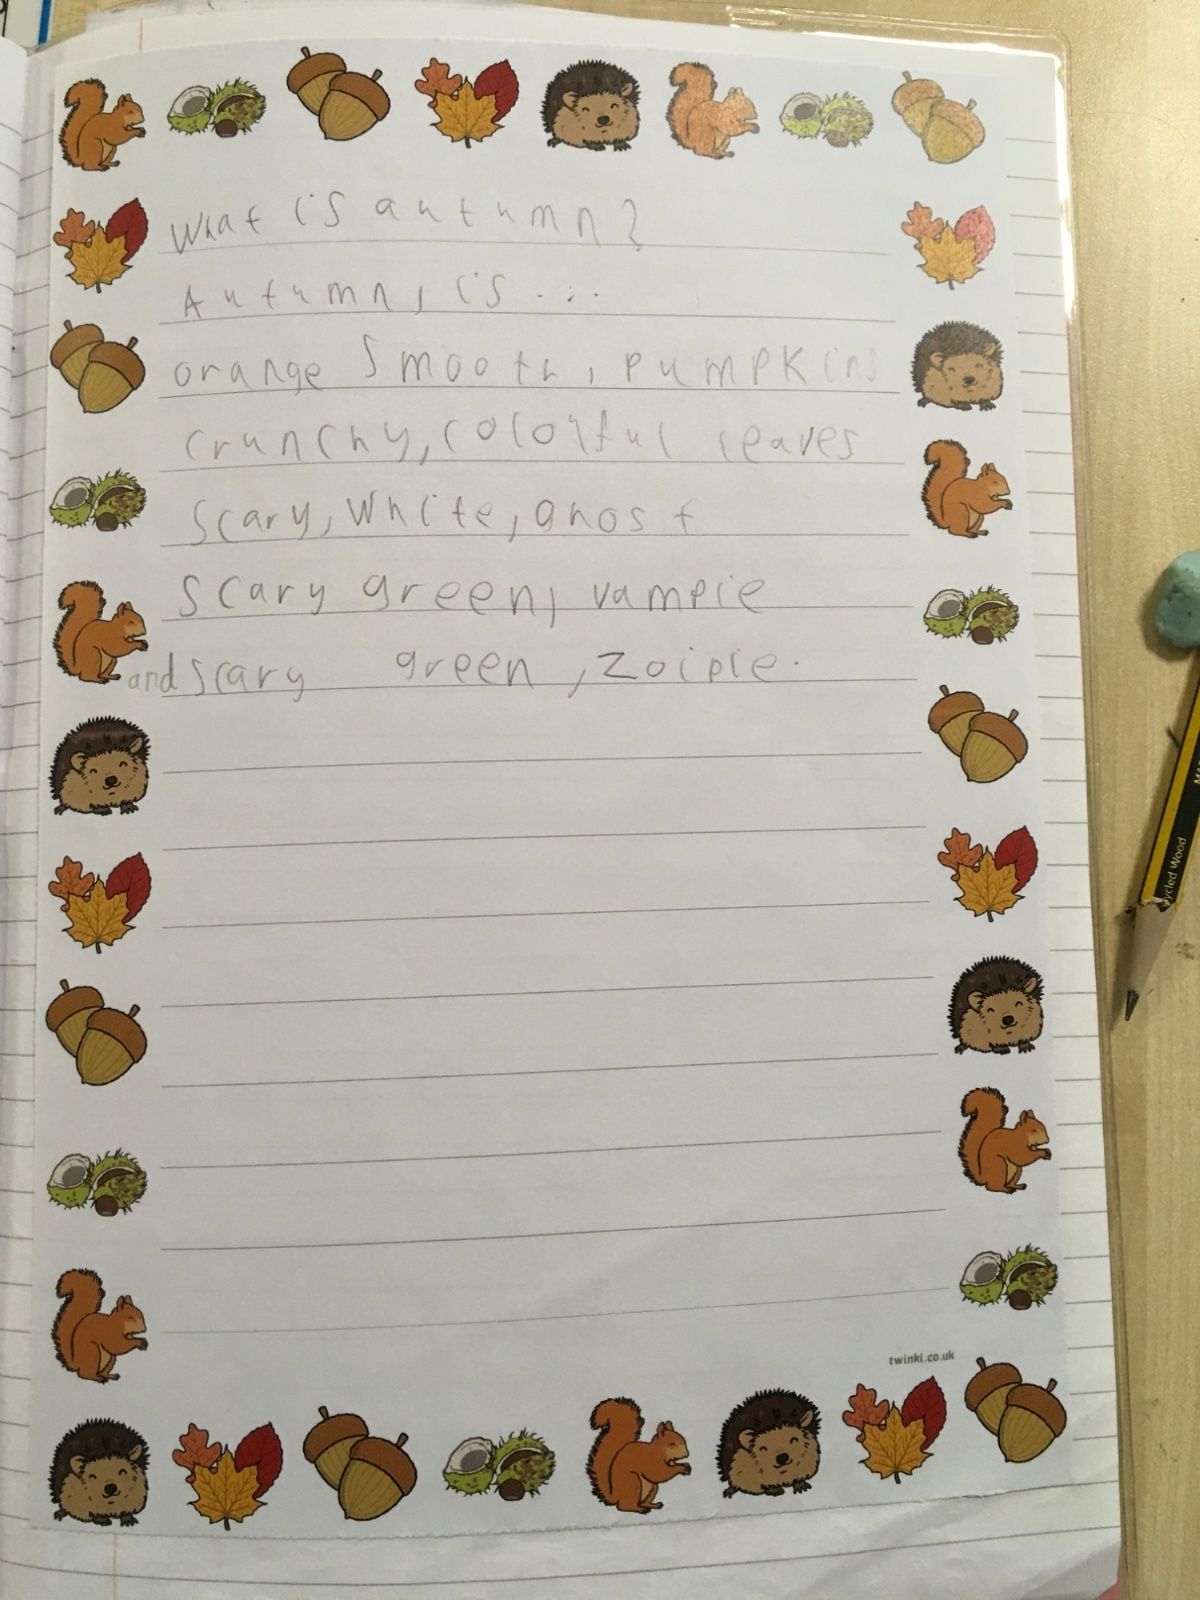 What is autumn?
Autumn, is ...
orange smooth, pumpkins
crunchy, colorful leaves
scary, white, ghost
scary green, vampie
and scary green, zoipie.
twinkl.co.uk
ycled Wood